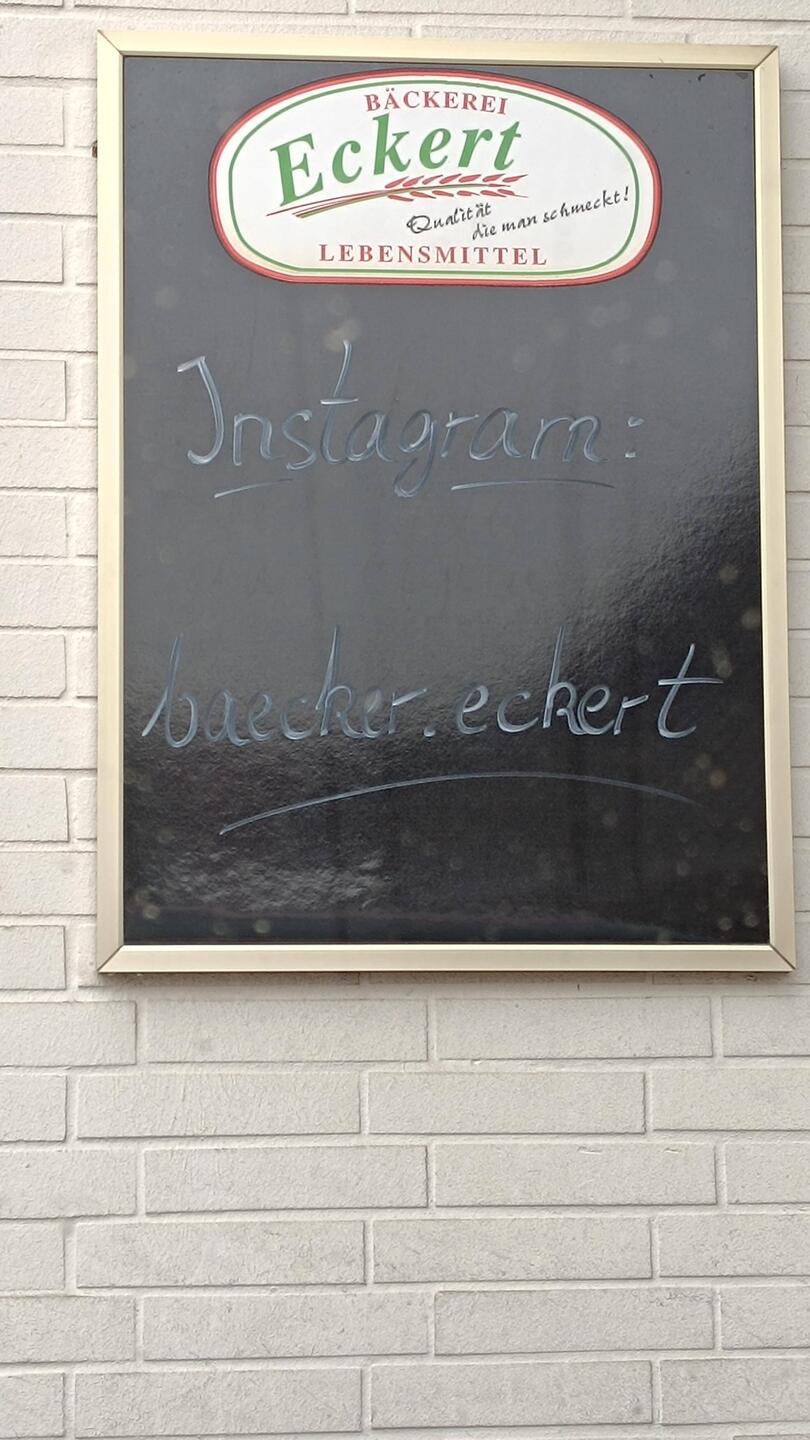 BÄCKEREI
Eckert
Qualität
die man schmeckt!
LEBENSMITTEL
Instagram:
baecker.eckert